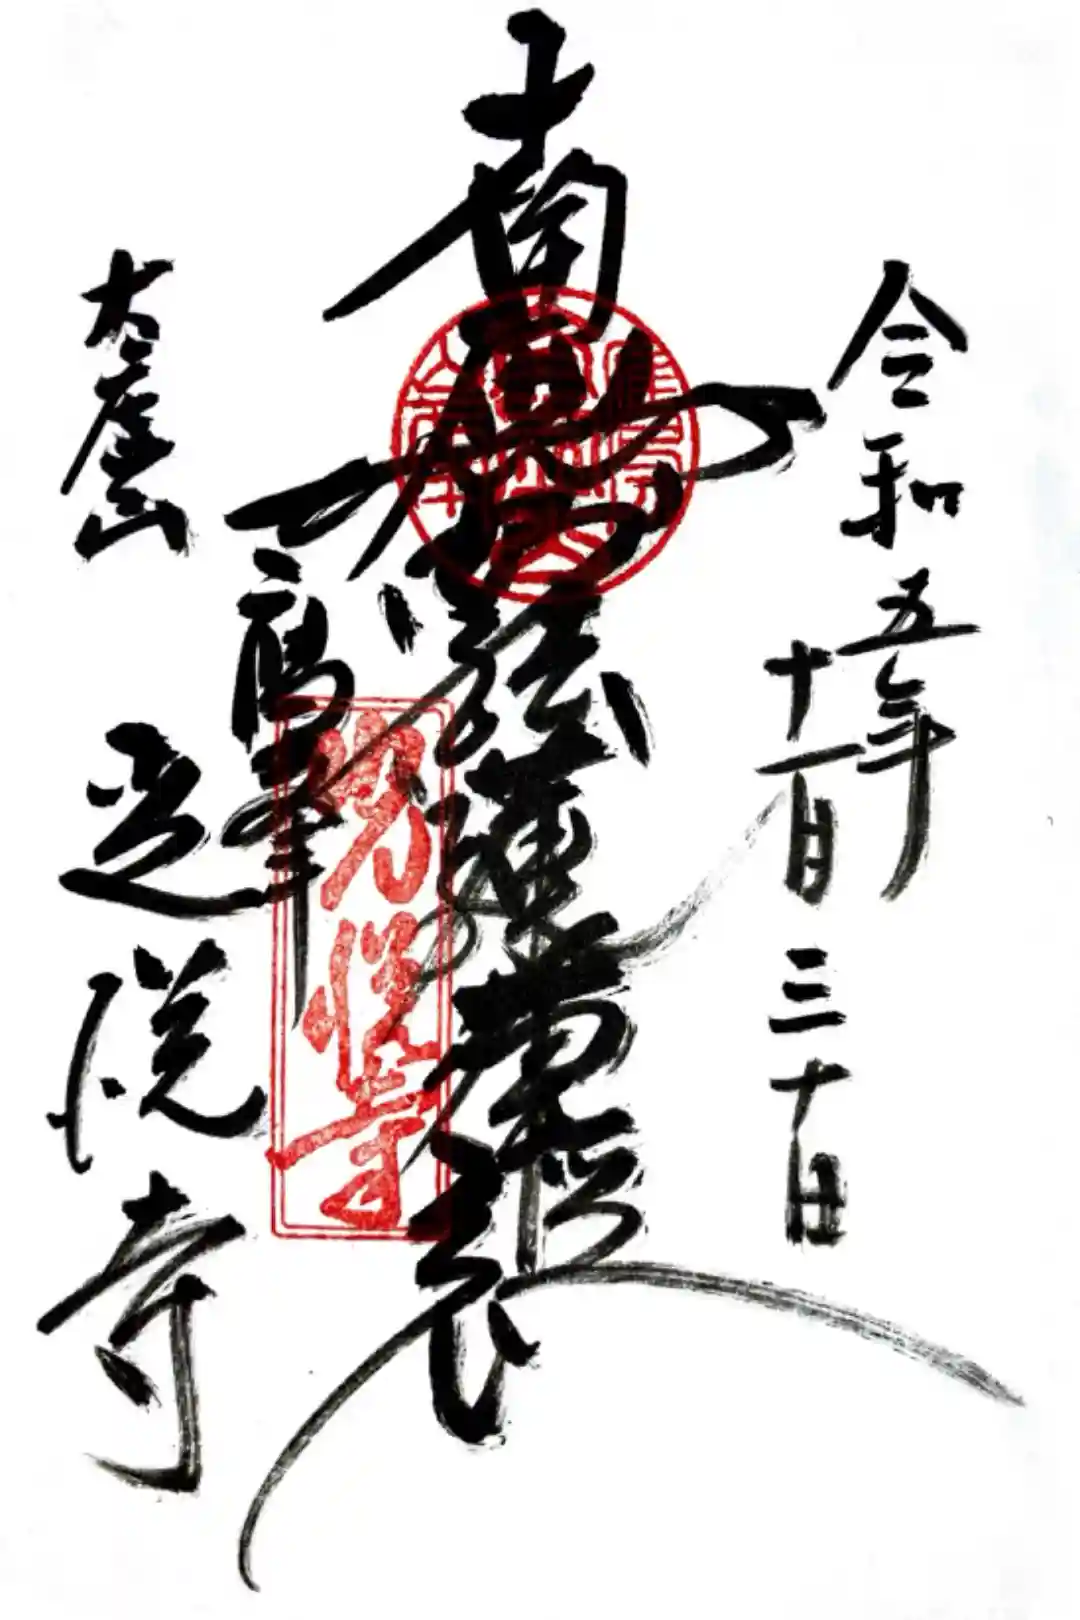 令和五年
十一月三十日
南無妙法蓮華経
光悦寺
鷹峯
大虚山
光悦寺